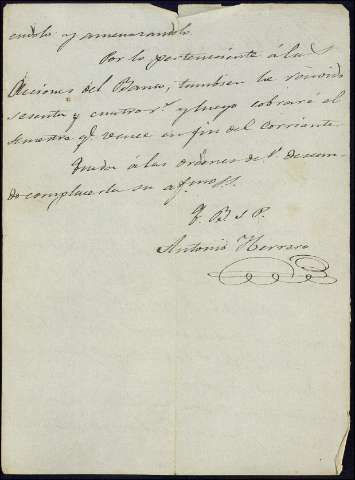 y amenazando.
Por lo perteneciente á las
Acciones del Banco, tambien he recivido
sesenta y cuatro r.s y luego cobraré el
semestre q.e vence en fin del corriente.
Queda á las ordenes de V. desean-
do complacerla su af.mo S.
Q. B. S. P.
Antonio Herrero